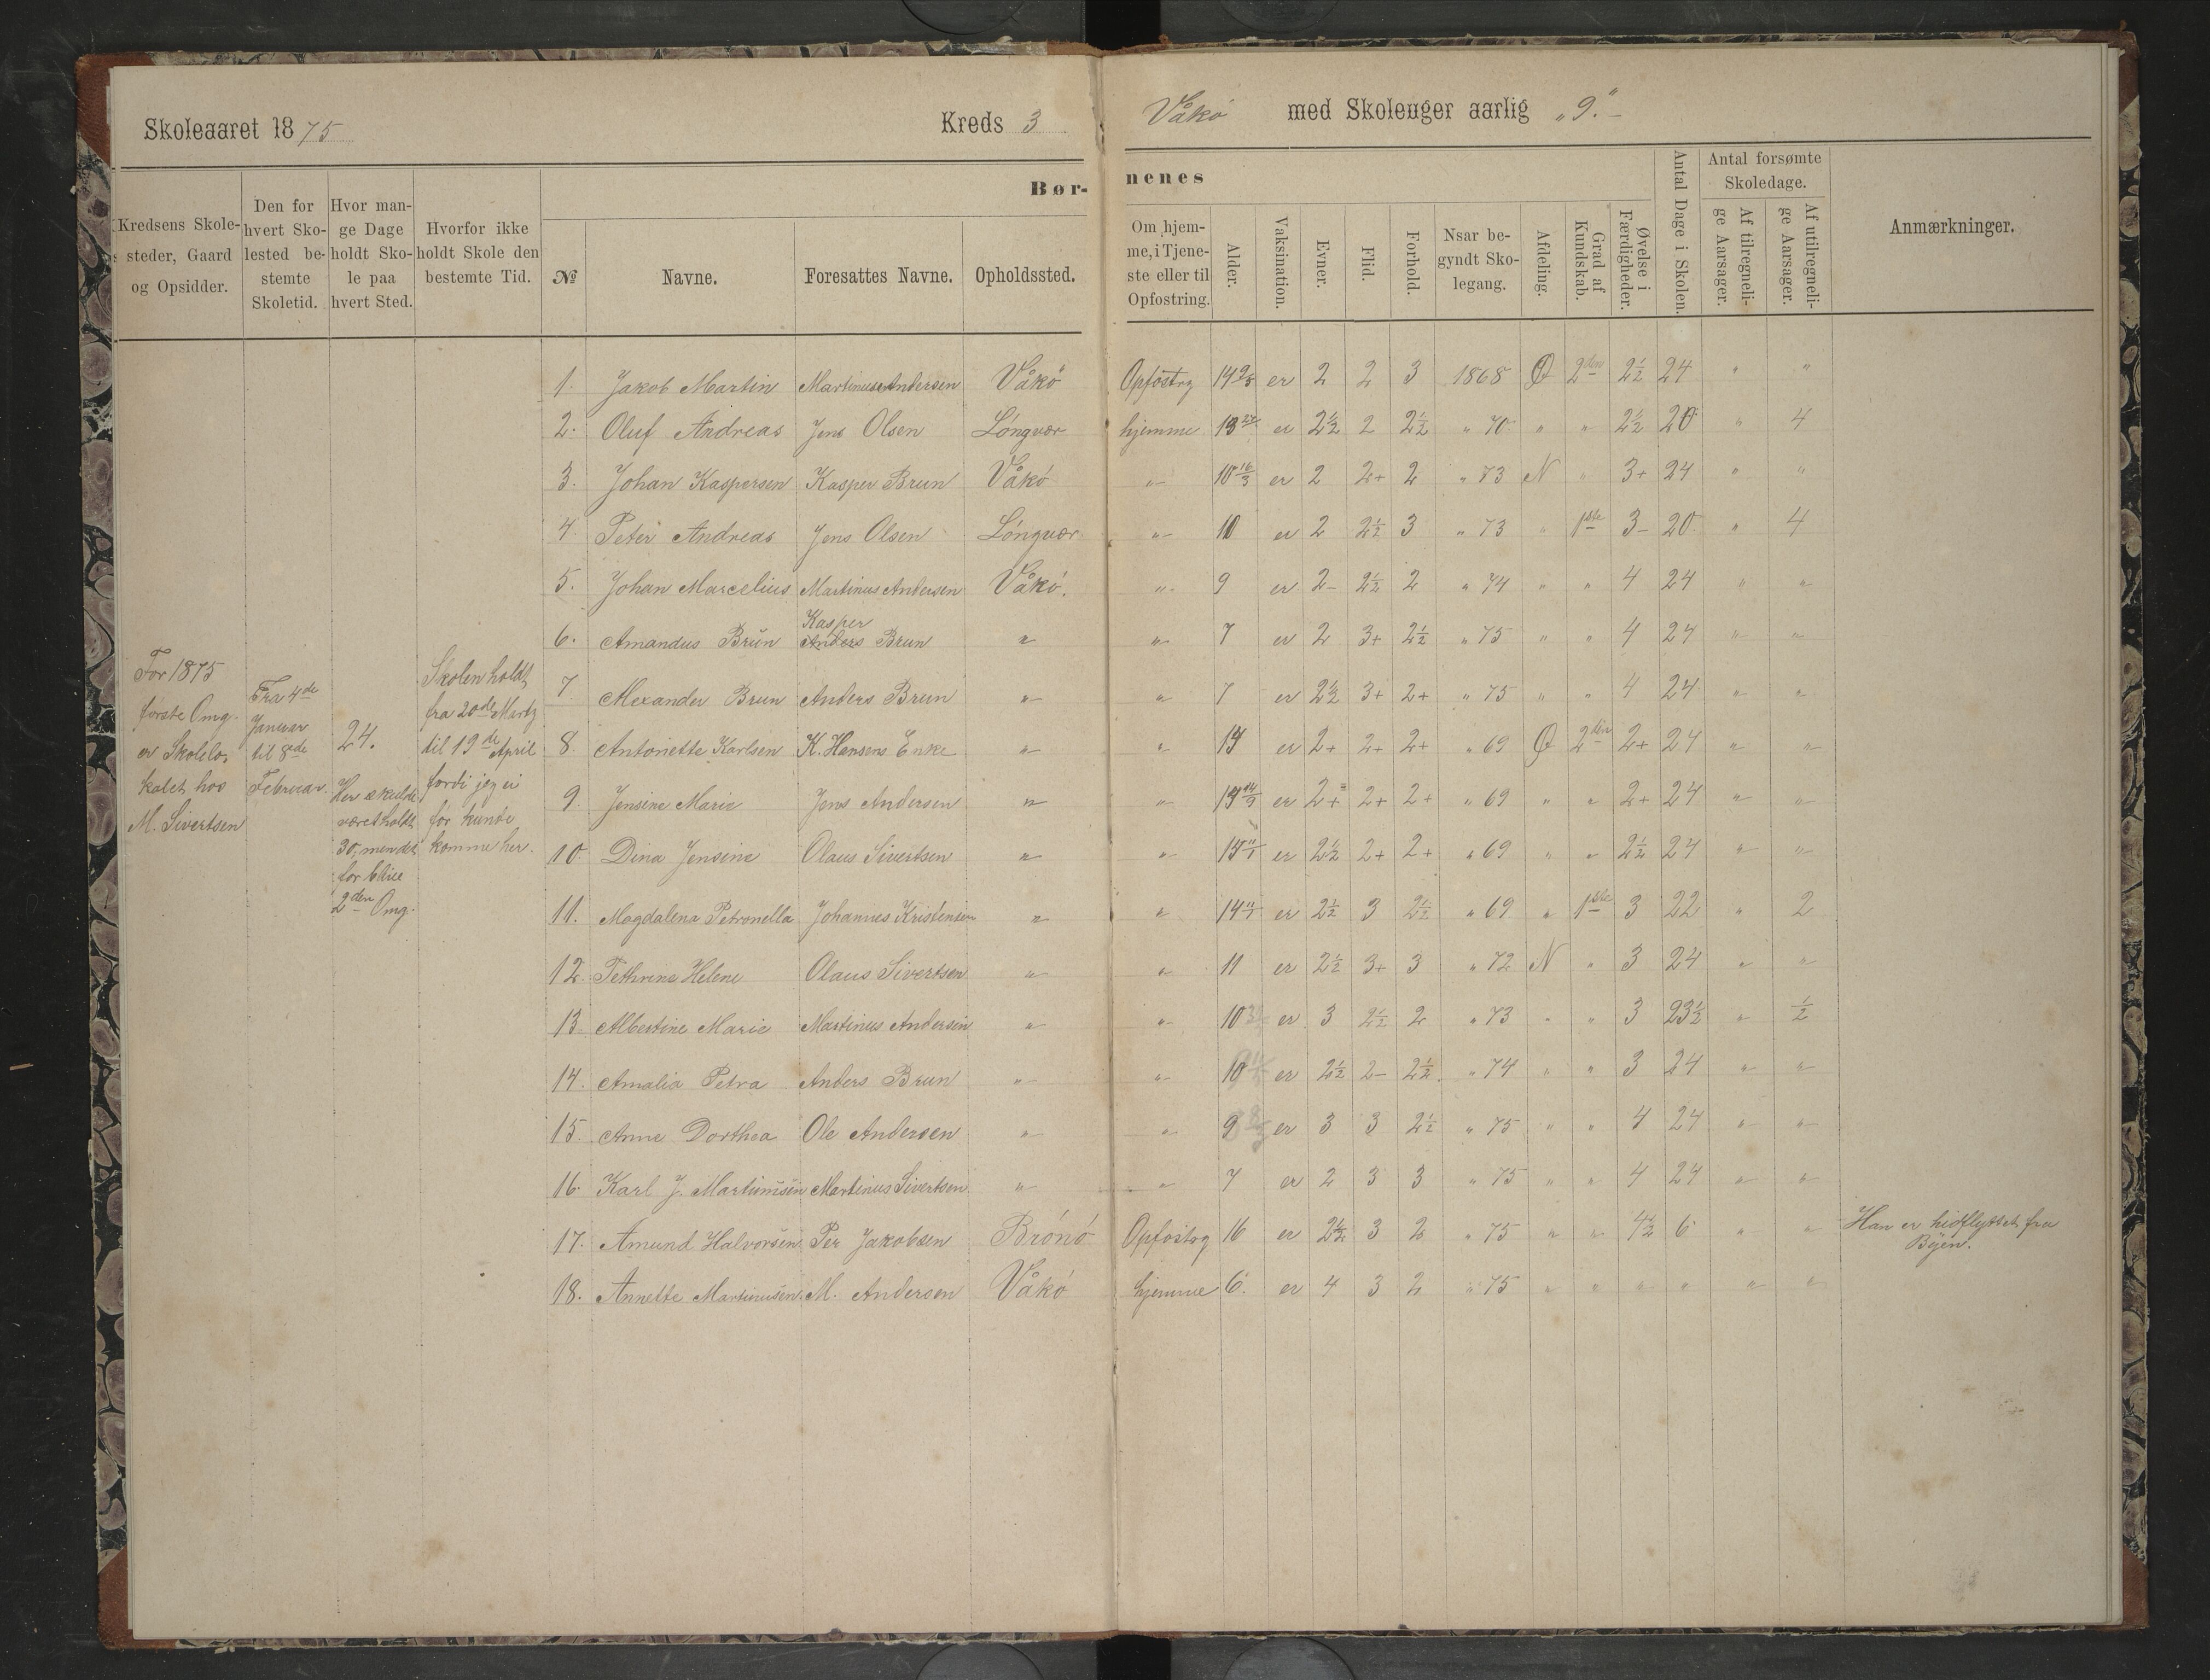 Skoleaaret 1875 Kreds 3 Våkö med Skoleuger aarlig „9.“
Kredsens Skolesteder, Gaard og Opsidder.
Den for hvert Skolested bestemte Skoletid.
Hvor mange Dage holdt Skole paa hvert Sted.
Hvorfor ikke holdt Skole den bestemte Tid.
Børnenes
№ Navne. Foresattes Navne. Opholdssted.
Om hjemme, i Tjeneste eller til Opfostring.
Alder. Vaksination. Evner. Flid. Forhold.
Nsar begyndt Skolegang.
Afdeling. Grad af Kundskab. Øvelse i Færdigheder. Antal Dage i Skolen.
Antal forsømte Skoledage.
Af tilregnelige Aarsager. Af utilregnelige Aarsager.
Anmærkninger.
For 1875
første Omg.
er Skolelo-
kalet hos
M. Sivertsen
Fra 4de
Januar
til 8de
Februar.
24.
Her skulde
været holdt
30, men det
for blive
2den Omg.
Skolen holdt
fra 20de Martz
til 19de April
fordi jeg ei
før kunde
komme her.
1. Jakob Martin Martinus Andersen Våkö Opfostrg 14 er 2 2 3 1868 Ø 2den 2½ 24 " "
2. Oluf Andreas Jens Olsen Lóngvær hjemme 13 er 2½ 2 2½ " 70 " " 2½ 20 " 4
3. Johan Kaspersen Kasper Brun Våkó " 10 16/3 er 2 2+ 2 " 73 N " 3+ 24 " "
4. Peter Andreas Jens Olsen Lóngvær " 10 er 2 2½ 3 " 73 " 1ste 3- 20 " 4
5. Johan Marcelius Martinus Andersen Våkó. " 9 er 2- 2½ 2 " 74 " " 4 24 " "
6. Amandus Brŭn Kasper Anders Brun " " 7 er 2 3+ 2½ " 75 " " 4 24 " "
7. Alexander Brun Anders Brun " " 7 er 2½ 3+ 2+ " 75 " " 4 24 " "
8. Antonette Karlsen K. Hansens Enke " " 14 er 2+ 2+ 2+ " 69 Ø 2den 2+ 24 " "
9. Jensine Marie Jens Andersen " " 14 er 2+ 2+ 2+ " 69 " " 2+ 24 " "
10. Dina Jensine Olaus Sivertsen " " 15 er 2½ 2+ 2+ " 69 " " 2½ 24 " "
11. Magdalena Petronella Johannes Kristensen " " 14 11/1 er 2½ 3 2½ " 69 " 1ste 3 22 " 2
12. Tethrine Helene Olaus Sivertsen " " 11 er 2½ 3+ 3 " 72 N " 3 24 " "
13. Albertine Marie Martinus Andersen " " 10 er 3 2½ 2 " 73 " " 3 23½ " ½
14. Amalia Petra Anders Brun " " 10 er 2½ 2- 2½ " 74 " " 3 24 " "
15. Anne Dorthea Ole Andersen " " 9 er 3 3 2½ " 75 " " 4 24 " "
16. Karl J. Martinusen Martinus Sivertsen " " 7 er 2 3 3 " 75 " " 4 24 " "
17. Amund Halvorsen Per Jakobsen Brónó Opfostrg 16 er 2½ 3 2 " 75 " " 4½ 6 " " Han er hidflyttet fra
Byen.
18. Annette Martinusen. M. Andersen Våkó hjemme 6 er 4 3 2 " 75 " " " " " "